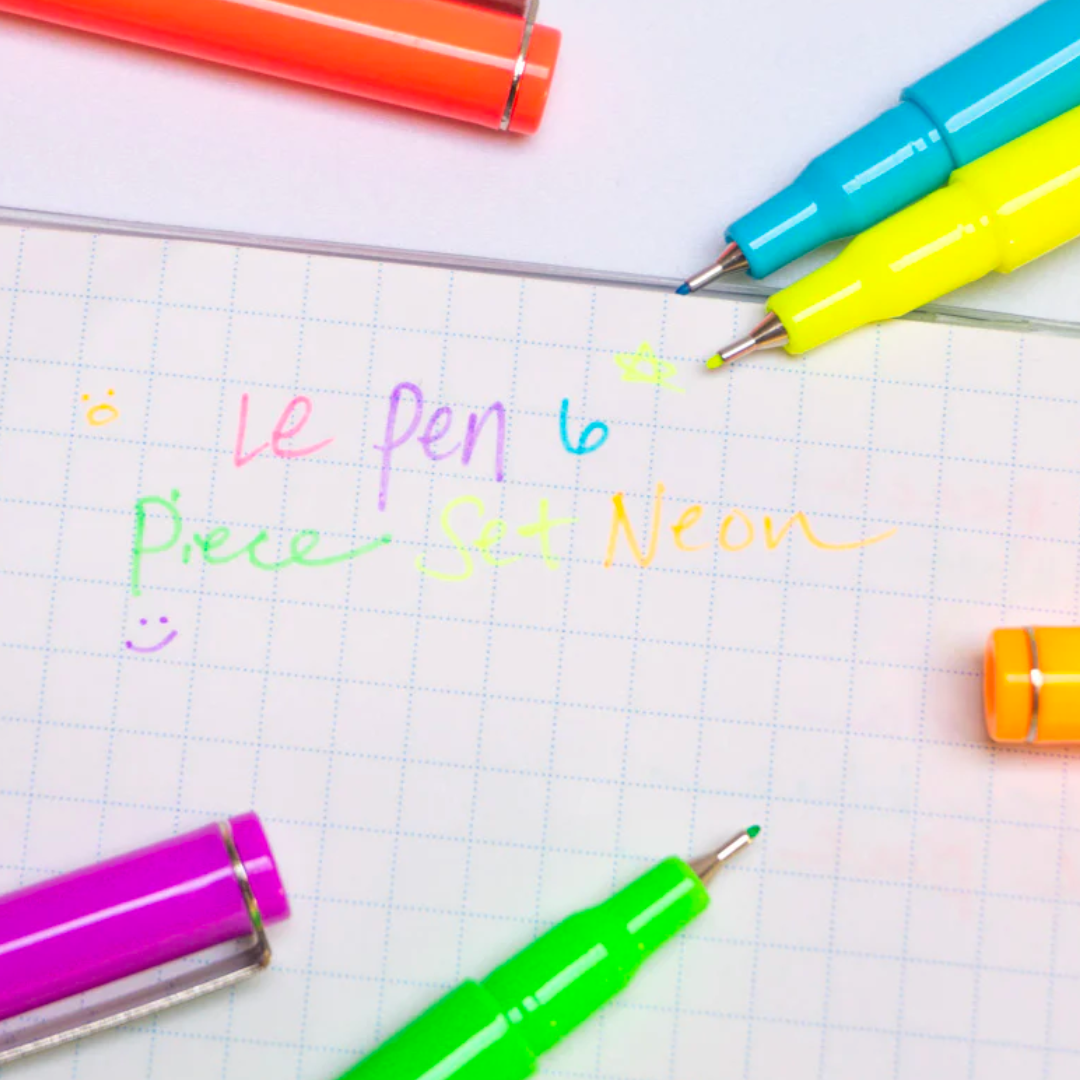 Le Pen 6
Piece Set Neon